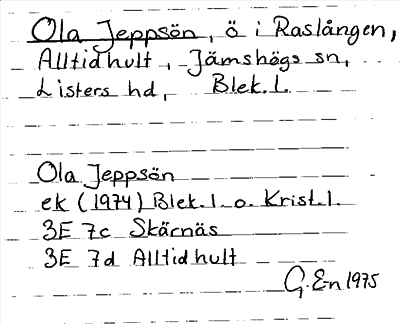 Ola Jeppsön, ö i Raslången,
Alltidhult, Jämshögs sn,
Listers hd, Blek. l.
Ola Jeppsön
ek (1974) Blek. l. o. Krist. l.
3E 7c Skärnäs
3E 7d Alltidhult
G. En 1975